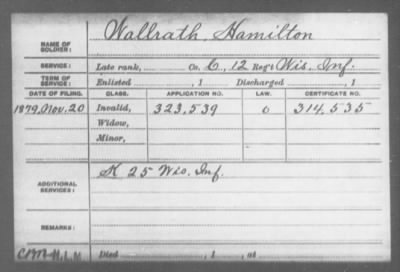 Wallrath, Hamilton
NAME OF SOLDIER:
SERVICE: Late rank, Co. C, 12 Reg't Wis. Inf.
TERM OF SERVICE: Enlisted , 1 Discharged , 1
DATE OF FILING. CLASS. APPLICATION NO. LAW. CERTIFICATE NO.
1879, Nov. 20 Invalid, 323,539 314,535
Widow,
Minor,
K 25 Wis. Inf.
ADDITIONAL SERVICES:
REMARKS:
Died , 1 , at